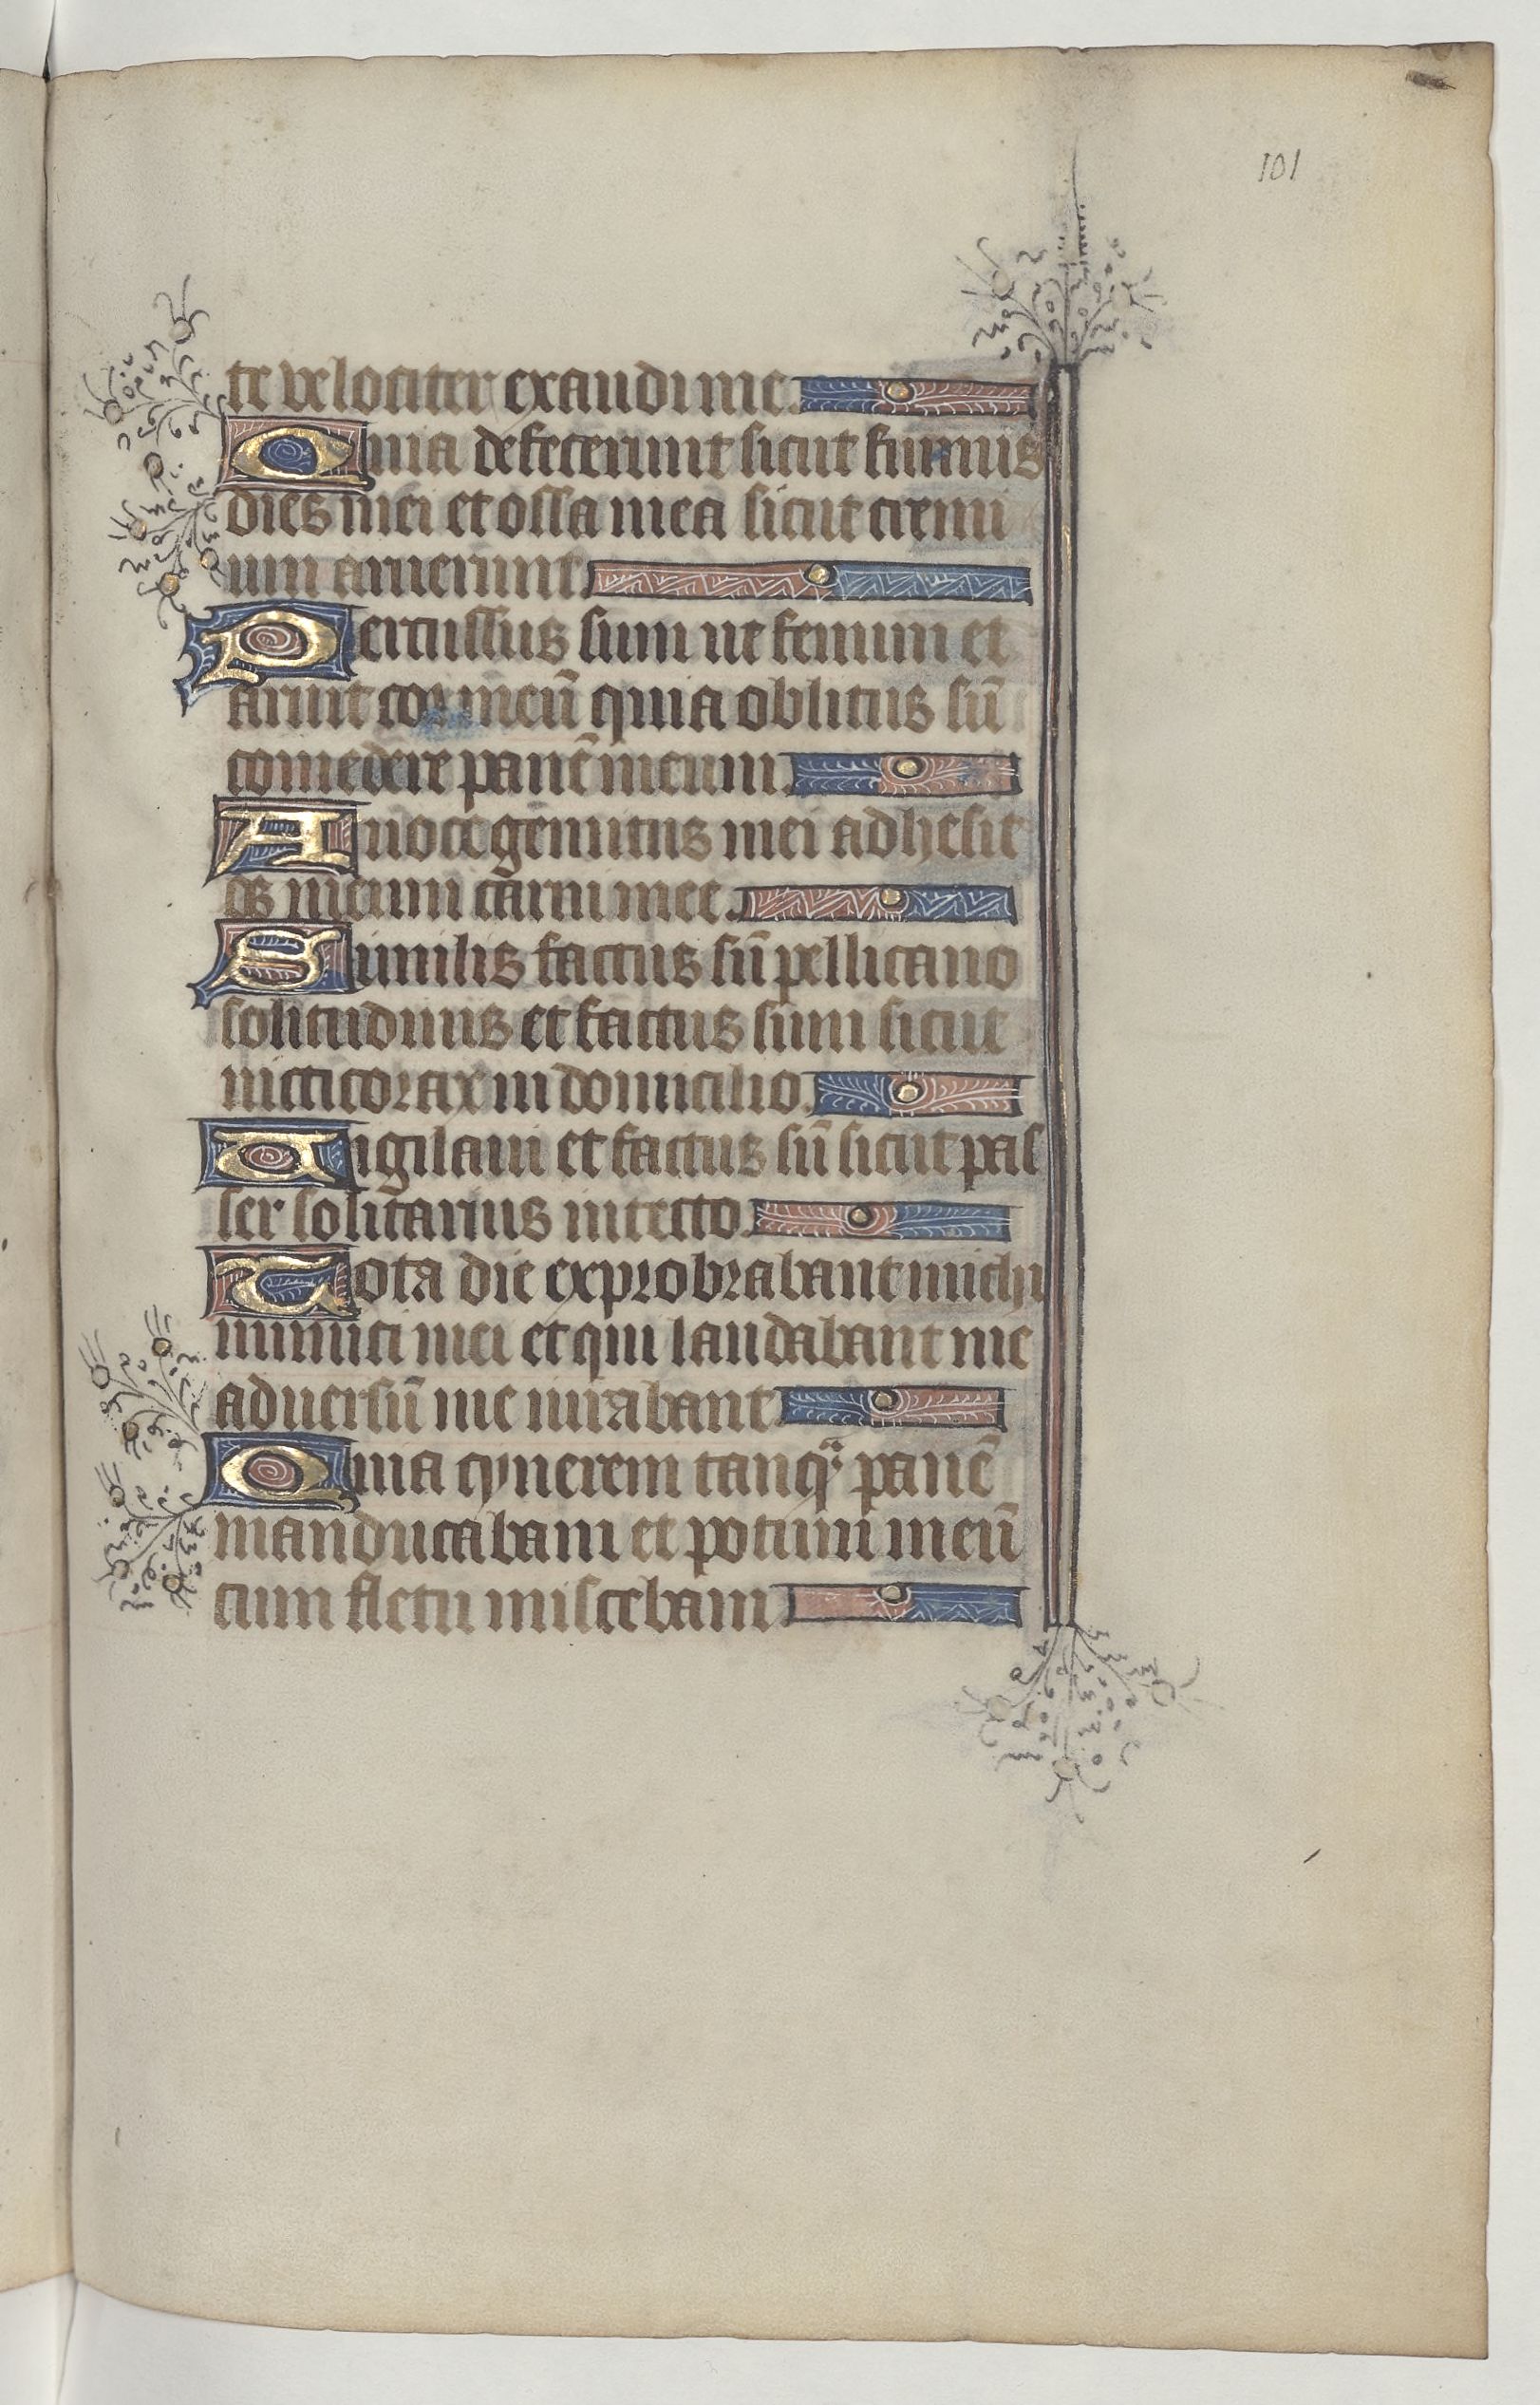 101
te velociter exaudi me.
Quia defecerunt sicut fumus
dies mei et ossa mea sicut cremi
um aruerunt.
Percussus sum ut fenum et
aruit cor meū quia oblitus sū
comedere panē meum.
A uoce gemitus mei adhesit
os meum carni mee.
Similis factus sū pellicano
solitudinis et factus sum sicut
nicticorax in domicilio.
Uigilaui et factus sū sicut pas
ser solitarius in tecto.
Tota die exprobrabant michi
inimici mei et qui laudabant me
aduersū me iurabant
Quia cynerem tanqᵃ panē
manducabam et potum meū
cum fletu miscebam